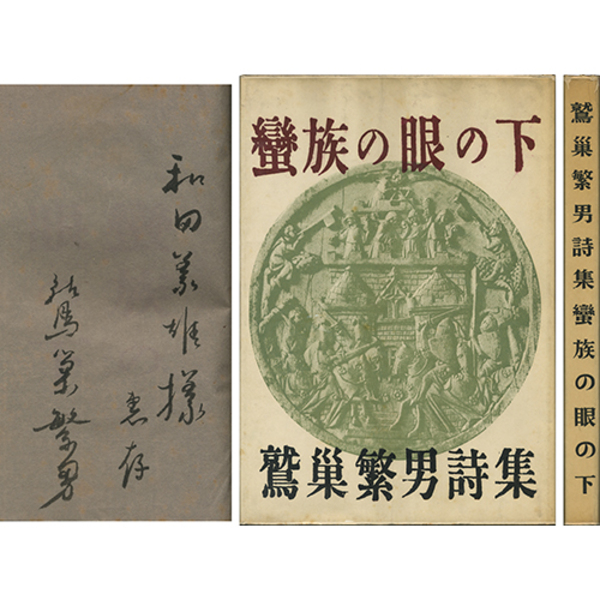 和田義雄様
恵存
鷲巣繁男
蛮族の眼の下
鷲巣繁男詩集
鷲巣繁男詩集蛮族の眼の下